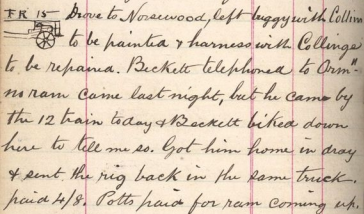 FR 15 Drove to Norsewood, left buggy with Collins
to be painted & harness with Collinge
to be repaired. Beckett telephoned to Orm"
no ram came last night, but he came by
the 12 train today & Beckett biked down
here to tell me so. Got him home in dray
& sent the rig back in the same truck.
paid 4/8. Potts paid for ram coming up.